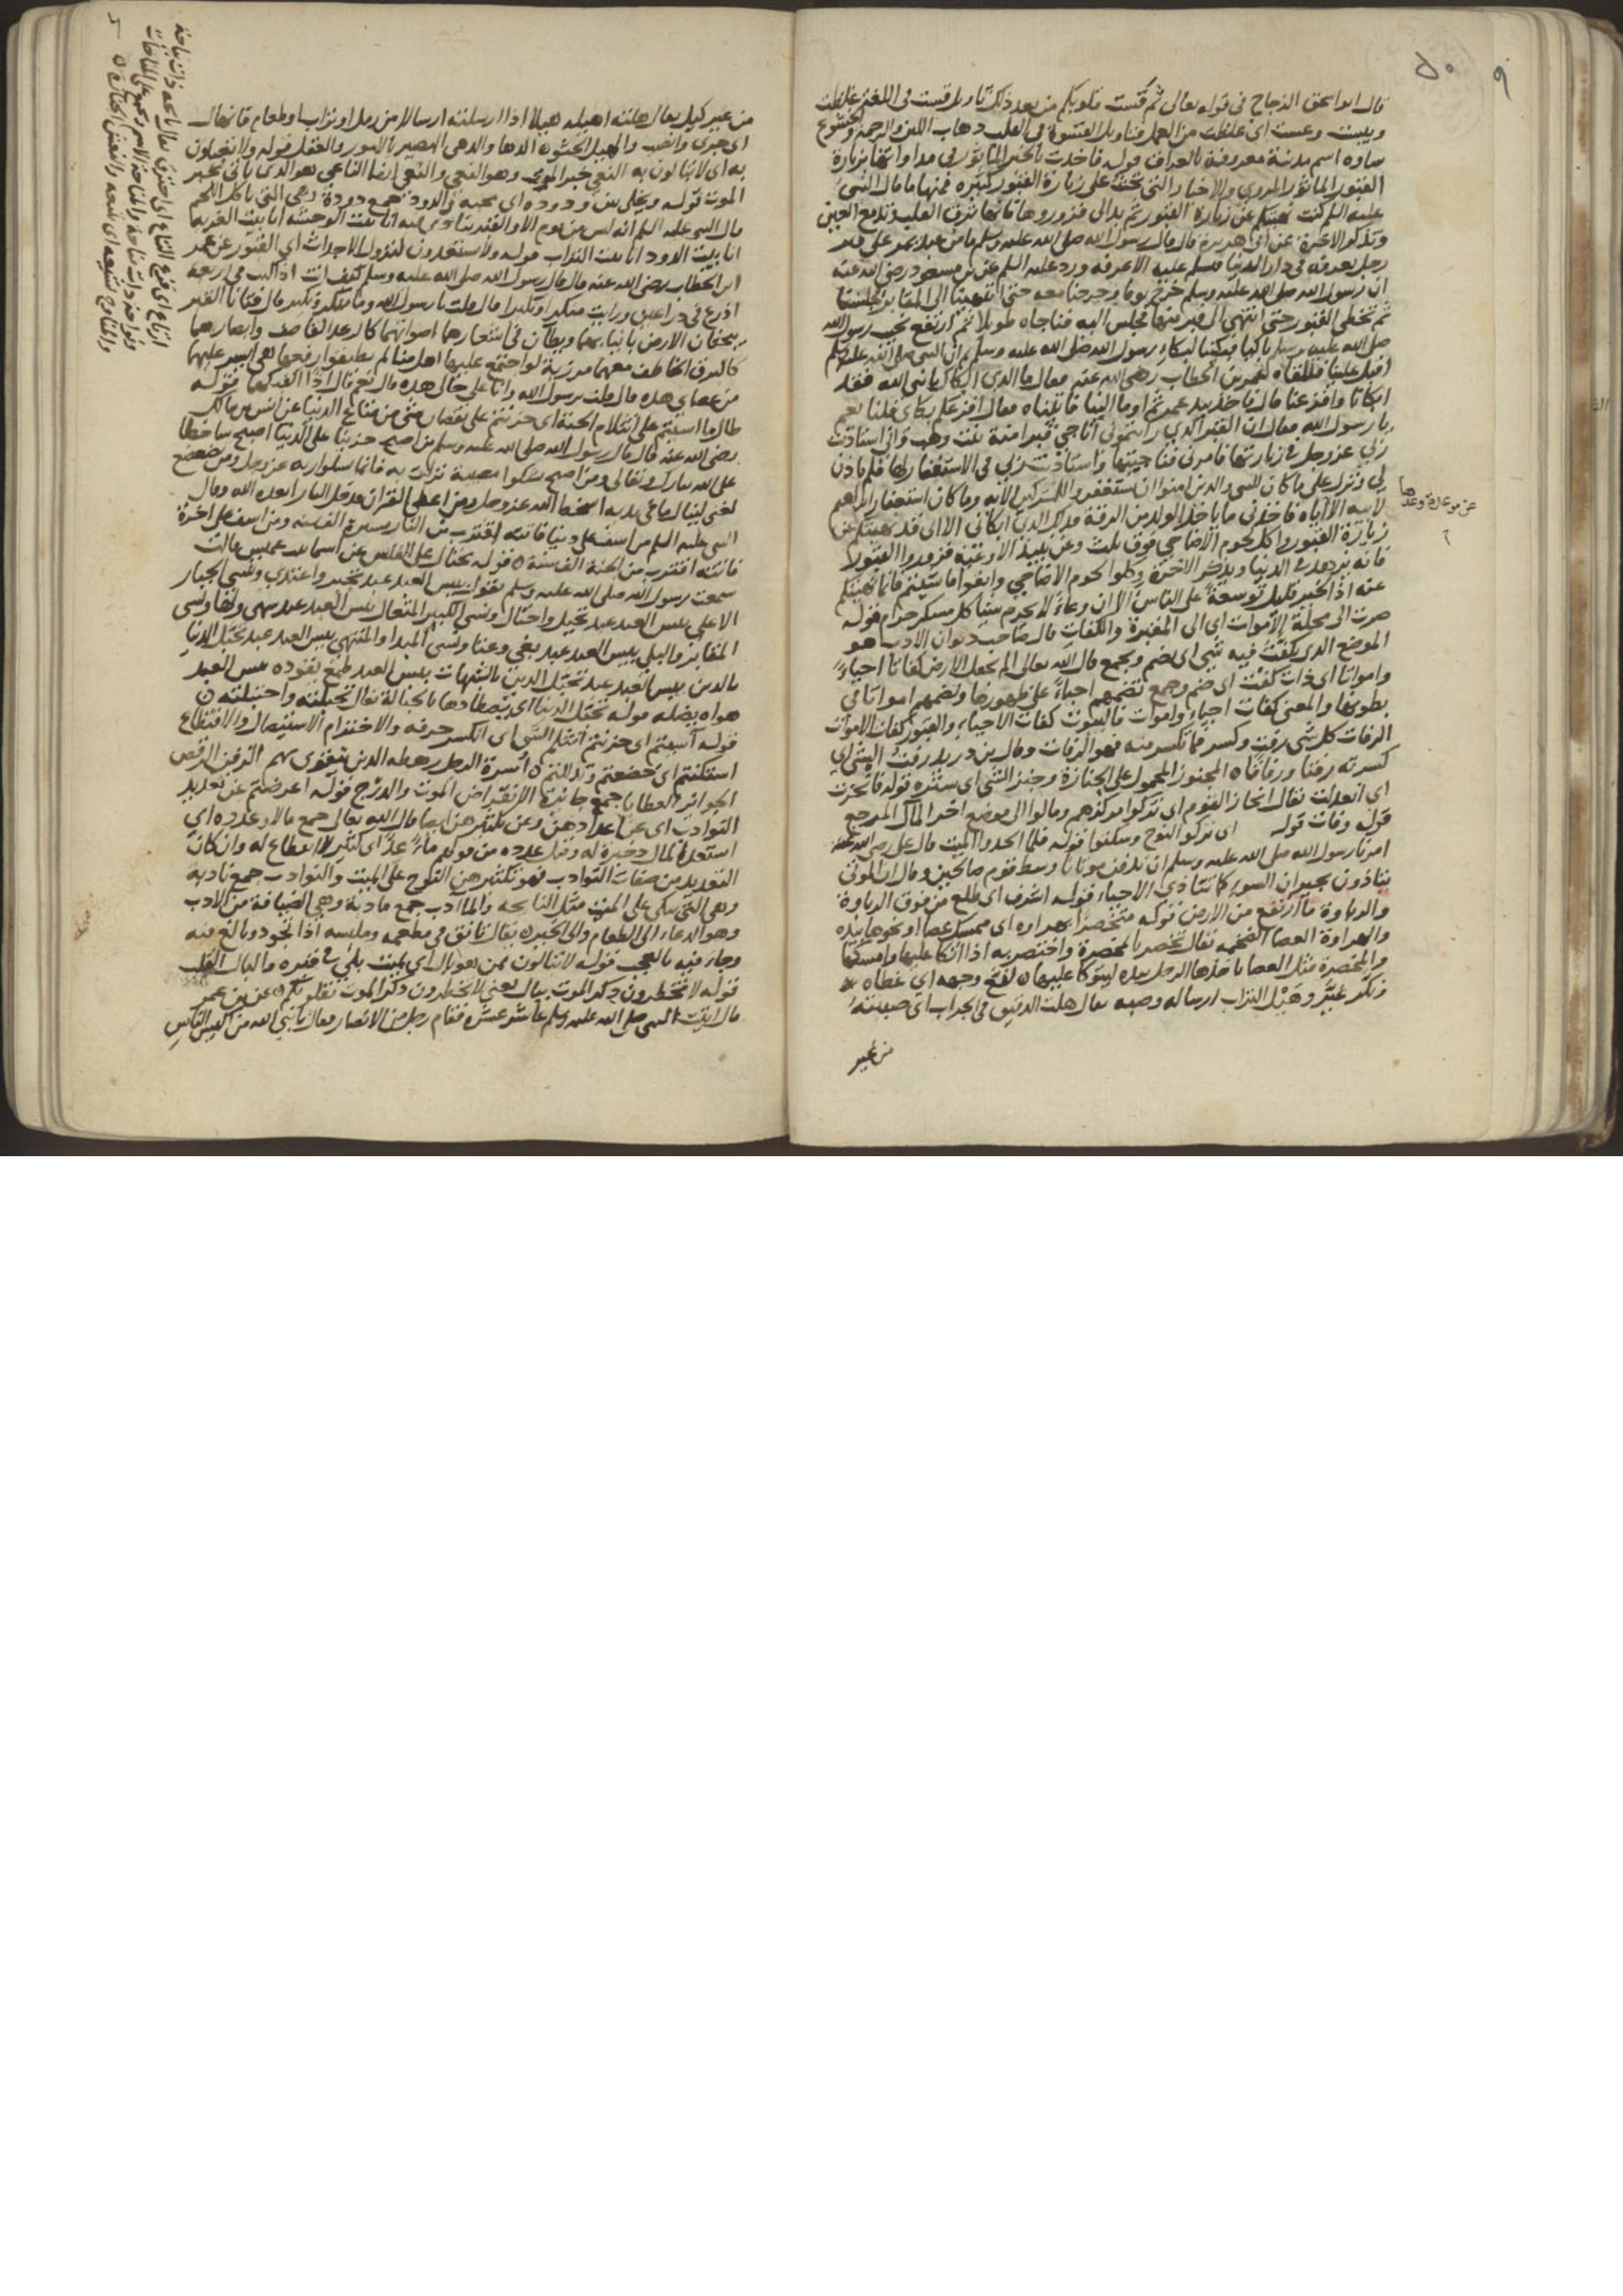 ٩
قال ابو اسحق الزجاج في قوله تعالى ثم قست قلوبكم من بعد ذلك تاويل قست في اللغة غلظت
ويبست وعست اى غلظت من العمل فتاويل القسوة في القلب ذهاب اللين والرحمة والخشوع
ساوه اسم مدينة معروفة بالعراق قوله فاخذت بالخبر الماثور في مداواتها بزيارة
القبور الماثور المروي والاخبار التي تحث على زيارة القبور كثيرة فمنها ما قال النبي
عليه السلم كنت نهيتكم عن زيارة القبور ثم بدا لي فزوروها فانها ترق القلب وتدمع العين
وتذكر الاخرة عن ابي هريرة قال قال رسول الله صلى الله عليه وسلم ما من عبد يمر على قبر
رجل يعرفه في دار الدنيا فسلم عليه الا عرفه ورد عليه السلم عن بن مسعود رضي الله عنه
ان رسول الله صلى الله عليه وسلم خرج يوما وخرجنا معه حتى انتهينا الى المقابر فجلسنا
ثم تخطى القبور حتى انتهى الى قبر منها فجلس اليه فناجاه طويلا ثم ارتفع نحيب رسول الله
صلى الله عليه وسلم باكيا فبكينا لبكاء رسول الله صلى الله عليه وسلم ثم ان النبي صلى الله عليه وسلم
اقبل علينا فتلقاه عمر بن الخطاب رضي الله عنه فقال ما الذي ابكاك يا نبي الله فقد
ابكانا وافزعنا قال فاخذ بيد عمر ثم اوما الينا فاتيناه فقال افزعكم بكاي قلنا نعم
يا رسول الله فقال ان القبر الذي رايتموني اناجي قبر امنة بنت وهب واني استاذنت
ربي عز وجل في زيارتها فاذن لي فناجيتها واستاذنت ربي في الاستغفار لها فلم ياذن
لي ونزل علي ما كان للنبي والذين امنوا ان يستغفروا للمشركين الاية وما كان استغفار ابراهيم
عن موعدة وعدها
لابيه الا اياه فاخذني ما ياخذ الولد من الرقة فذلك الذي ابكاني الا اني قد نهيتكم عن
زيارة القبور واكل لحوم الاضاحي فوق ثلث وعن نبيذ الاوعية فزوروا القبور
فانه يزهد في الدنيا ويذكر الاخرة وكلوا لحوم الاضاحي وابقوا ما شيتم فانما نهيتكم
عنه اذ الخير قليل توسعة على الناس الا ان وعاء لا يحرم شيا كل مسكر حرام قوله
صرت الى محلة الاموات اى الى المقبرة والكفات قال صاحب ديوان الادب هو
الموضع الذي يكفت فيه شي اى يضم ويجمع قال الله تعالى الم نجعل الارض كفاتا احياء
وامواتا اى ذات كفت اى ضم وجمع تضمهم احياء على ظهورها وتضمهم امواتا في
بطونها والمعنى كفات احياء واموات فالبيوت كفات الاحياء والقبور كفات الاموات
الرفات كل شي رفت وكسر فما تكسر منه فهو الرفات وقال بن دريد رفت الشي اى
كسرته رفتا ورفاتا المجنوز المحمول على الجنازة وجنز الشي اى ستره قوله فانحزت
اى انعدلت يقال انحاز القوم اى تركوا مركزهم ومالوا الى موضع اخر المال المرجع
قوله وفات قوله اى تركوا النوح وسكتوا قوله فلما الحدوا الميت قال علي رضي الله عنه
امرنا رسول الله صلى الله عليه وسلم ان ندفن موتانا وسط قوم صالحين وقال ان الموتى
يتاذون بجيران السوء كما يتاذى الاحياء قوله اشرف اى طلع من فوق الرباوة
والرباوة ما ارتفع من الارض قوله متخصرا بهراوه اى ممسك عصا او نحوها بيده
والهراوة العصا الضخمه يقال تخصر بالمخصرة واختصر به اذا اتكا عليها وامسكها
والمخصرة مثل العصا ياخذها الرجل بيده ليتوكا عليها لفع وجهه اى غطاه
نكر غير وهيل التراب ارساله وصبه يقال هلت الدقيق في الجراب اى صببته
من غير
من غير كيل يقال هلته اهيله هيلا اذا ارسلته ارسالا من رمل او تراب او طعام فانهال
اى جرى وانصب والهيل الحثو الدها والدهى البصير بالامور والعقل قوله ولا تحفلون
به اى لا تبالون به النعي خبر الموت وهو النعي والنعي ايضا الناعي هو الذي ياتي بخبر
الموت قوله ويخلى بين ودوده اى محبه والدود جمع دودة وهي التي تاكل اللحم
قال النبي عليه السلم انه ليس من يوم الا والقبر ينادي فيه انا بيت الوحشه انا بيت الغربه
انا بيت الدود انا بيت التراب قوله ولا تستعدون لنزول الاجداث اى القبور عن عمر
ابن الخطاب رضي الله عنه قال قال رسول الله صلى الله عليه وسلم كيف انت اذا كنت في اربعة
اذرع في ذراعين ورايت منكرا ونكيرا قال قلت يا رسول الله وما منكر ونكير قال فتانا القبر
يبحثان الارض بانيابهما ويطآن في اشعارهما اصواتهما كالرعد القاصف وابصارهما
كالبرق الخاطف معهما مرزبة لو اجتمع عليها اهل منا لم يطيقوا رفعها هي ايسر عليهما
من عصاي هذه قال قلت برسول الله وانا على حالي هذه قال نعم قال اذا اكفيكهما قوله
طال ما اسيتم على انثلام الحبة اى حزنتم على نقصان شي من متاع الدنيا عن انس بن مالك
رضي الله عنه قال قال رسول الله صلى الله عليه وسلم من اصبح حزينا على الدنيا اصبح ساخطا
على الله تبارك وتعالى ومن اصبح يشكوا مصيبة نزلت به فانما يشكوا ربه عز وجل ومن تضعضع
لغني لينال ما في يديه اسخط الله عز وجل ومن اعطي القران فدخل النار ابعده الله وقال
النبي عليه السلم من اسف على دنيا فاتته اقترب من النار مسيرة الف سنه ومن اسف على اخرة
فاتته اقترب من الجنة الف سنة قوله تختال عن اسما بنت عميس قالت
سمعت رسول الله صلى الله عليه وسلم يقول بيس العبد عبد تجبر واعتدى ونسي الجبار
الاعلى بيس العبد عبد تخيل واختال ونسي الكبير المتعال بيس العبد عبد سهى ولها ونسي
المقابر والبلى بيس العبد عبد بغى وعتا ونسي المبدا والمنتهى بيس العبد عبد يختل الدنيا
بالدين بيس العبد عبد يختل الدين بالشبهات بيس العبد طمع يقوده بيس العبد
هواه يضله قوله تختل الدنيا اى يصطادها بالحبالة يقال تحبلته واحتبلته
قوله اسيتم اى حزنتم انثلم الشي اى انكسر حرفه والاخترام الاستيصال والاقتطاع
استكنتم اى خضعتم وتذللتم اسرة الرجل رهطه الذين يتقوى بهم الزفن الرقص
الجوايز العطايا جمع جايزة الانقراض الموت والدرج قوله اعرضتم عن تعديد
النوادب اى عن اعدادهن وعن تكثيرهن ايضا قال الله تعالى جمع مالا وعدده اى
استعده لمال ذخيرة له وقيل عدده من قولهم ماء عد اى كثير لا انقطاع له وان كان
التعديد من صفات النوادب فهو تكثيرهن النوح على الميت والنوادب جمع نادبة
وهي التي تبكي على الميت مثل النايحه والماادب جمع مادبة وهي الضيافة من الادب
وهو الدعاء الى الطعام والى الخير يقال تانق في مطعمه وملبسه اذا تجود وبالغ فيه
وجاء فيه بالعجب قوله لا تبالون بمن هو بال اى بميت بلي في قبره والبال القلب
قوله لا تخطرون ذكر الموت ببال يعني لا تخطرون ذكر الموت بقلوبكم عن بن عمر
قال اتيت النبي صلى الله عليه وسلم عاشر عشرة فقام رجل من الانصار فقال يا نبي الله من اكيس الناس